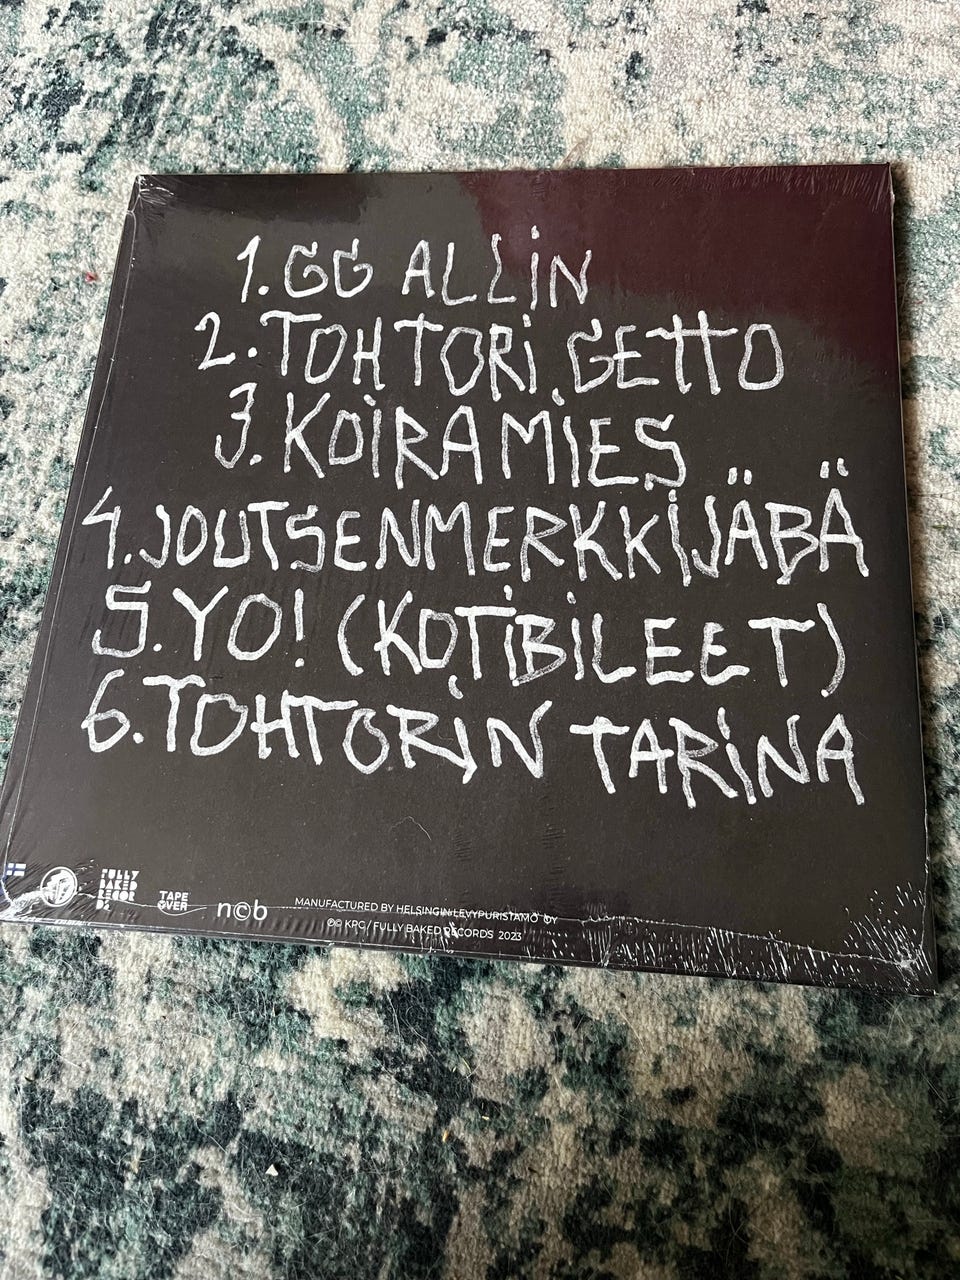 1. GG ALLiN
2. TOHTORi GETTO
3. KOiRAMiES
4. JOUTSENMERKKiJÄBÄ
5. YO! (KOTiBiLEET)
6. TOHTORiN TARiNA
FULLY
BAKED
RECOR
DS
TAPE
OVER
n©b
MANUFACTURED BY HELSINGIN LEVYPURISTAMO OY
℗© KPC / FULLY BAKED RECORDS 2023